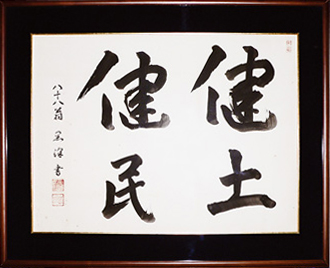 健土
健民
八十八翁
書